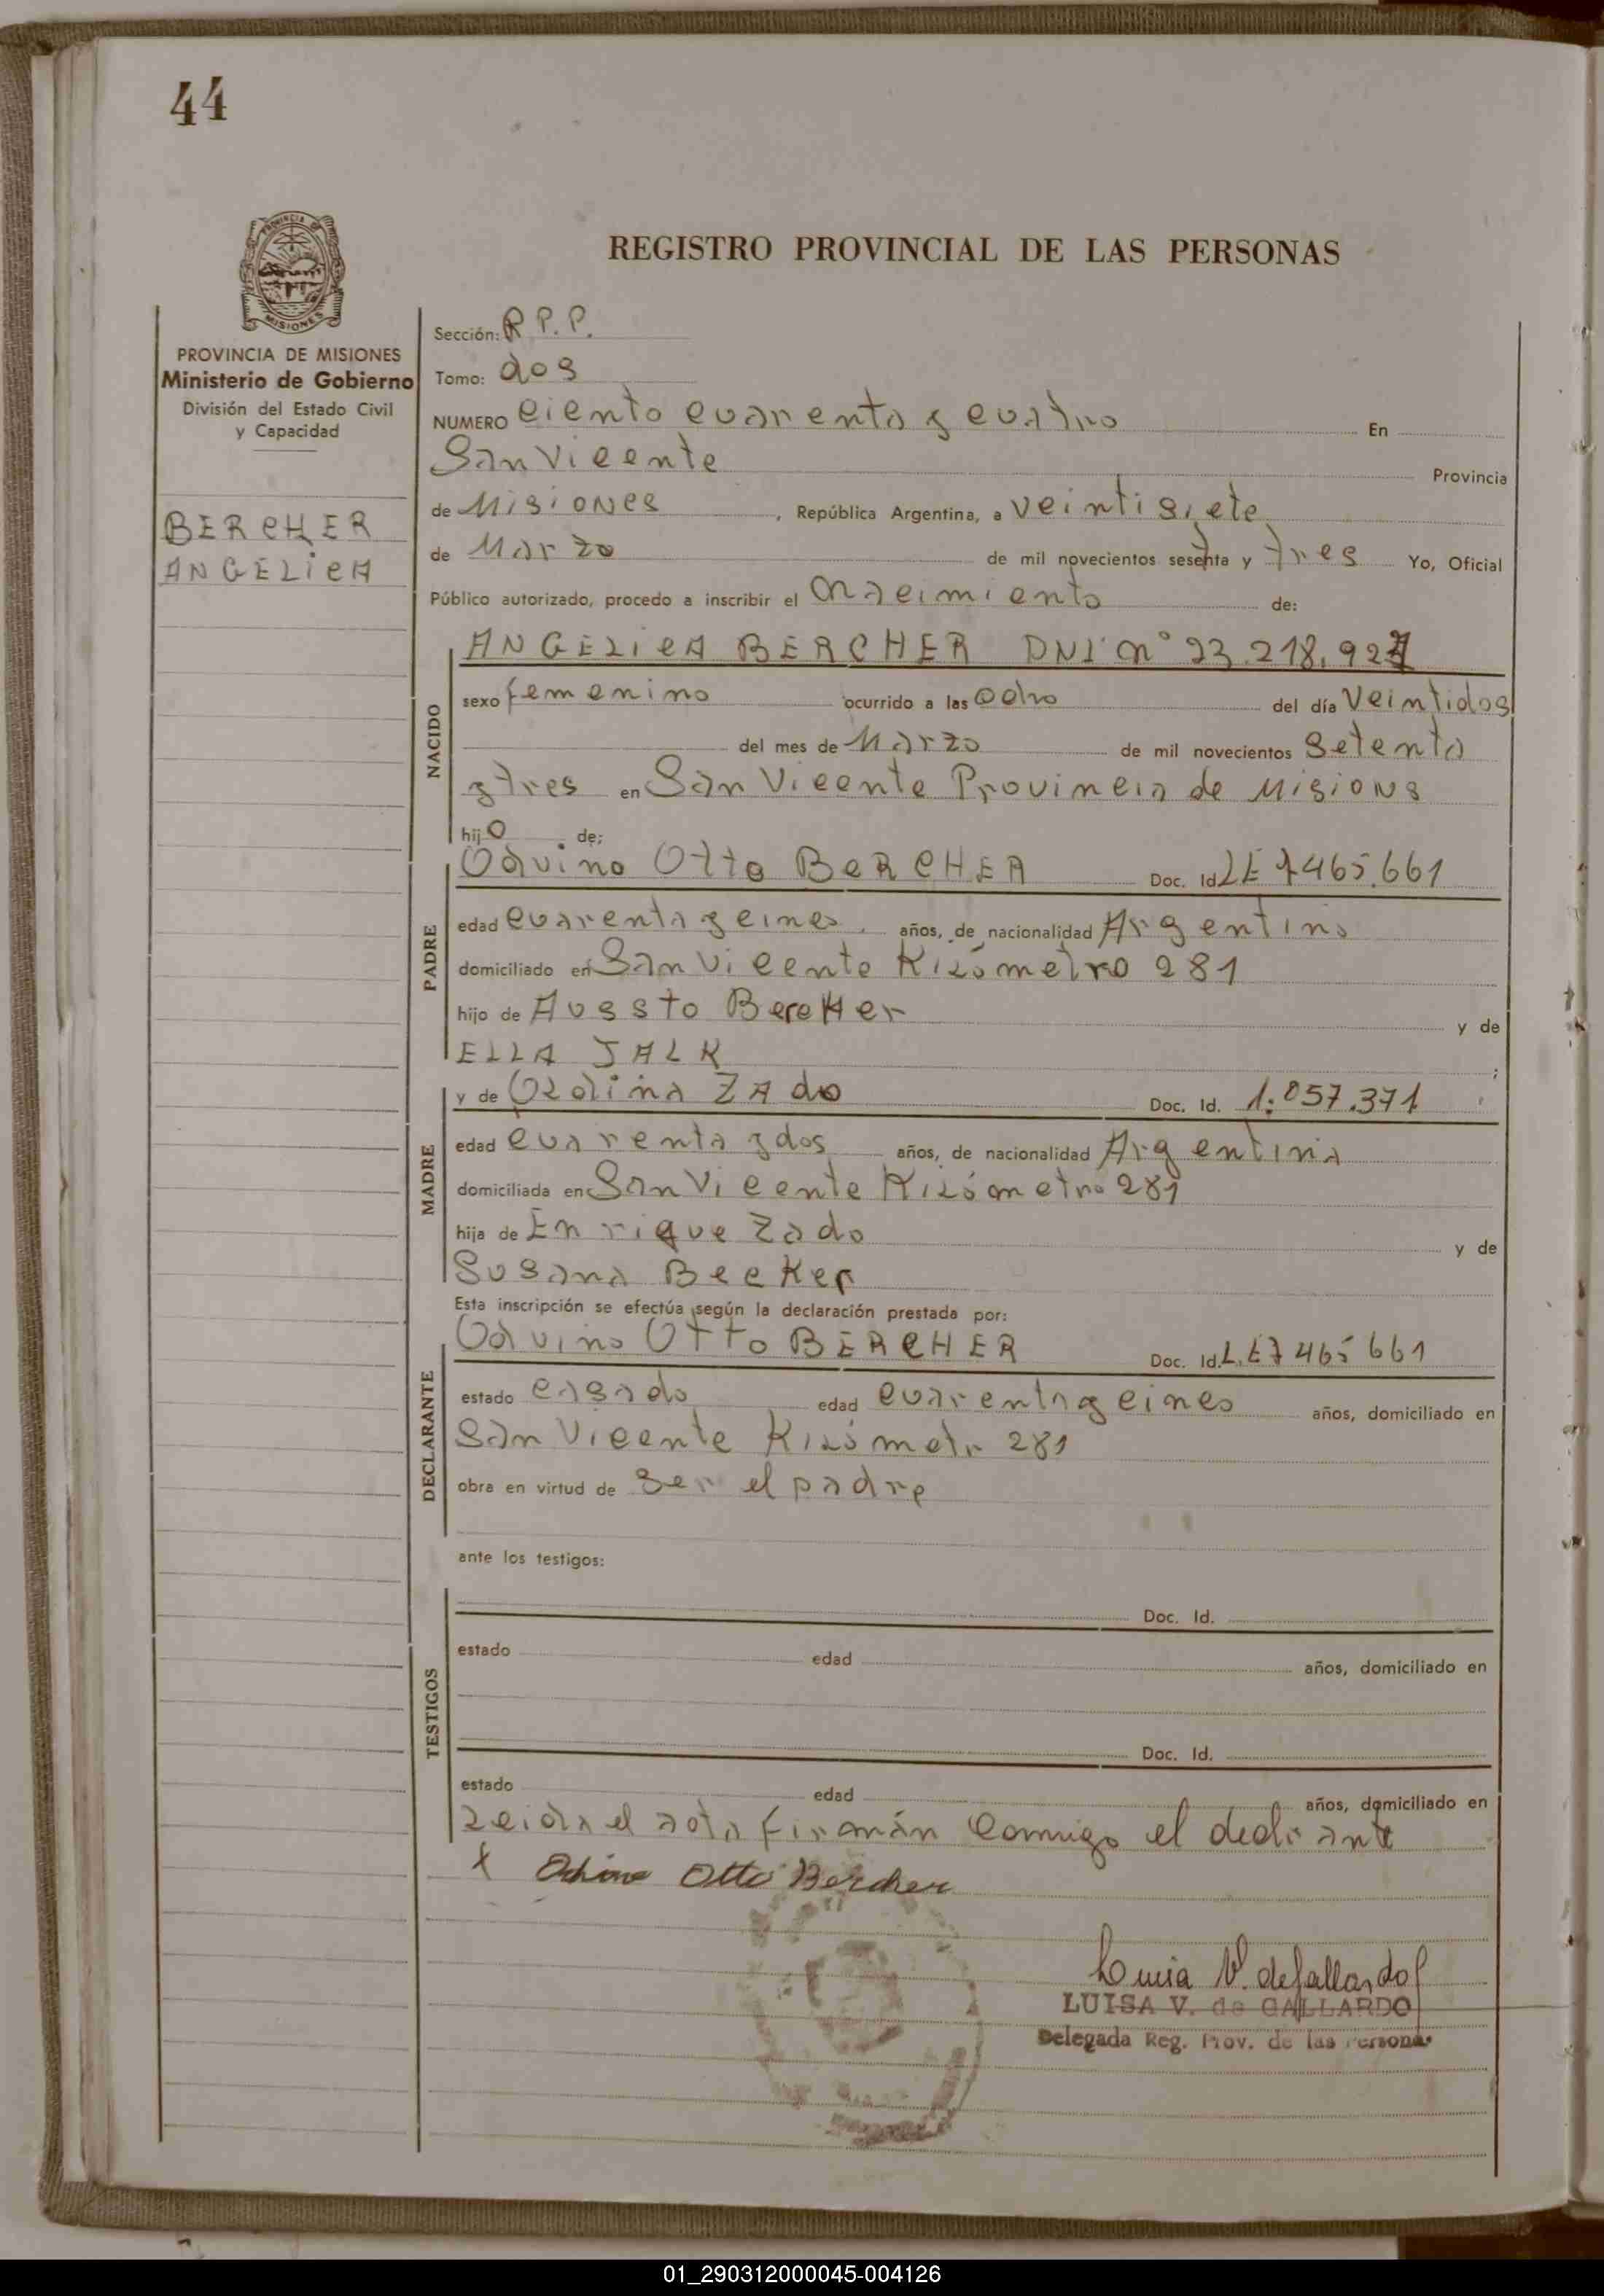 44
REGISTRO PROVINCIAL DE LAS PERSONAS
PROVINCIA
MISIONES
PROVINCIA DE MISIONES
Ministerio de Gobierno
División del Estado Civil
y Capacidad
BERCHER
ANGELICA
Sección: R.P.P.
Tomo: dos
NUMERO ciento cuarenta y cuatro En
San Vicente Provincia
de Misiones, República Argentina, a veintisiete
de Marzo de mil novecientos sesenta y tres Yo, Oficial
Público autorizado, procedo a inscribir el nacimiento de:
NACIDO
ANGELICA BERCHER DNI n° 23.218.927
sexo femenino ocurrido a las ocho del día veintidos
del mes de Marzo de mil novecientos setenta
y tres en San Vicente Provincia de Misions
hijo de:
PADRE
Odvino Otto BERCHER Doc. Id. LE 7465.661
edad cuarenta y cinco años, de nacionalidad Argentino
domiciliado en San Vicente Kilómetro 281
hijo de Augsto Bercher y de
ELLA JALK ;
MADRE
y de Ozdina ZAdo Doc. Id. 1.057.371
edad cuarenta y dos años, de nacionalidad Argentina
domiciliada en San Vicente Kilómetro 281
hija de Enrique Zado y de
Susana Becker
Esta inscripción se efectúa según la declaración prestada por:
DECLARANTE
Odvino Otto BERCHER Doc. Id. L.E 7465661
estado casado edad cuarenta y cinco años, domiciliado en
San Vicente Kilómetr 281
obra en virtud de ser el padre
ante los testigos:
TESTIGOS
Doc. Id.
estado edad años, domiciliado en
Doc. Id.
estado edad años, domiciliado en
Leida el acta firmán conmigo el declarante
x Otto Bercher
Luisa V. de Gallardo
LUISA V. de GALLARDO
Delegada Reg. Prov. de las Personas
01_290312000045-004126